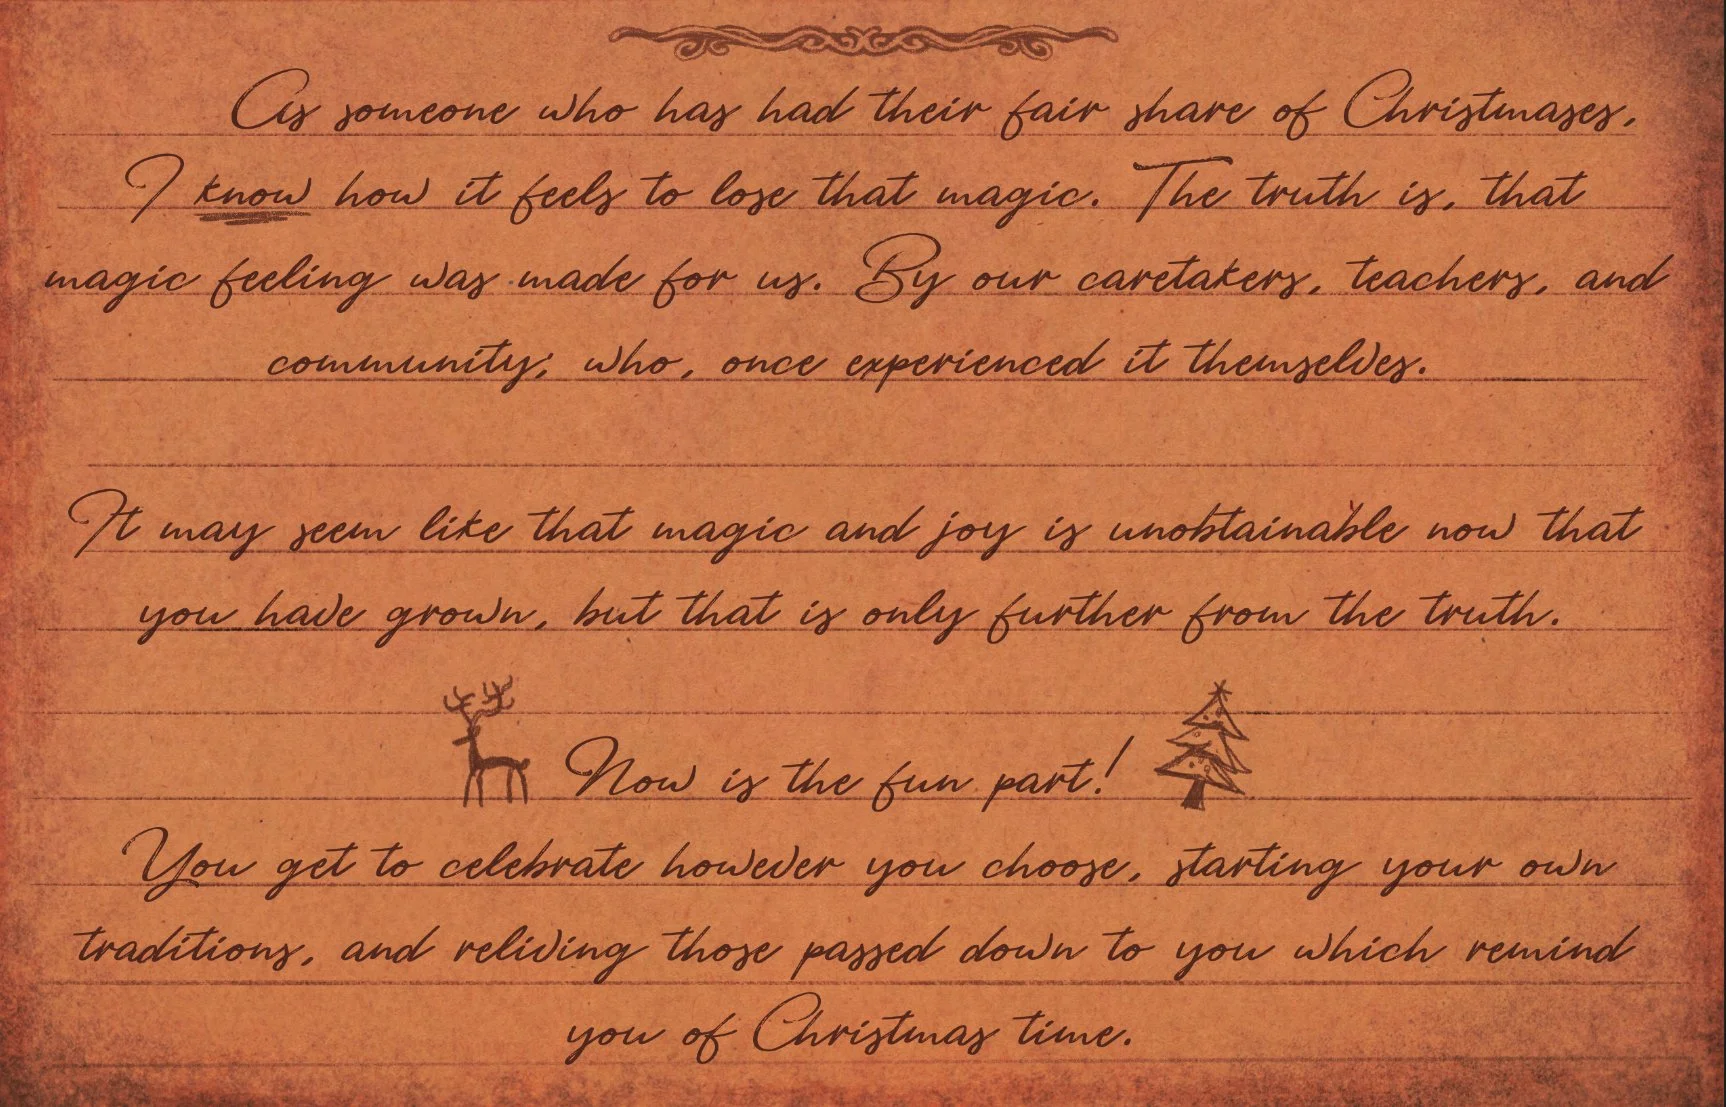 As someone who has had their fair share of Christmases,
I know how it feels to lose that magic. The truth is, that
magic feeling was made for us. By our caretakers, teachers, and
community; who, once experienced it themselves.
It may seem like that magic and joy is unobtainable now that
you have grown, but that is only further from the truth.
Now is the fun part!
You get to celebrate however you choose, starting your own
traditions, and reliving those passed down to you which remind
you of Christmas time.